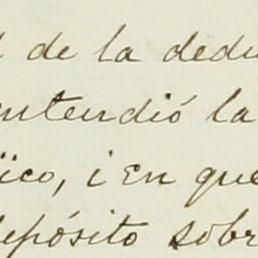 l de la dedu
entendió la
ïco, i en que
depósito sobr